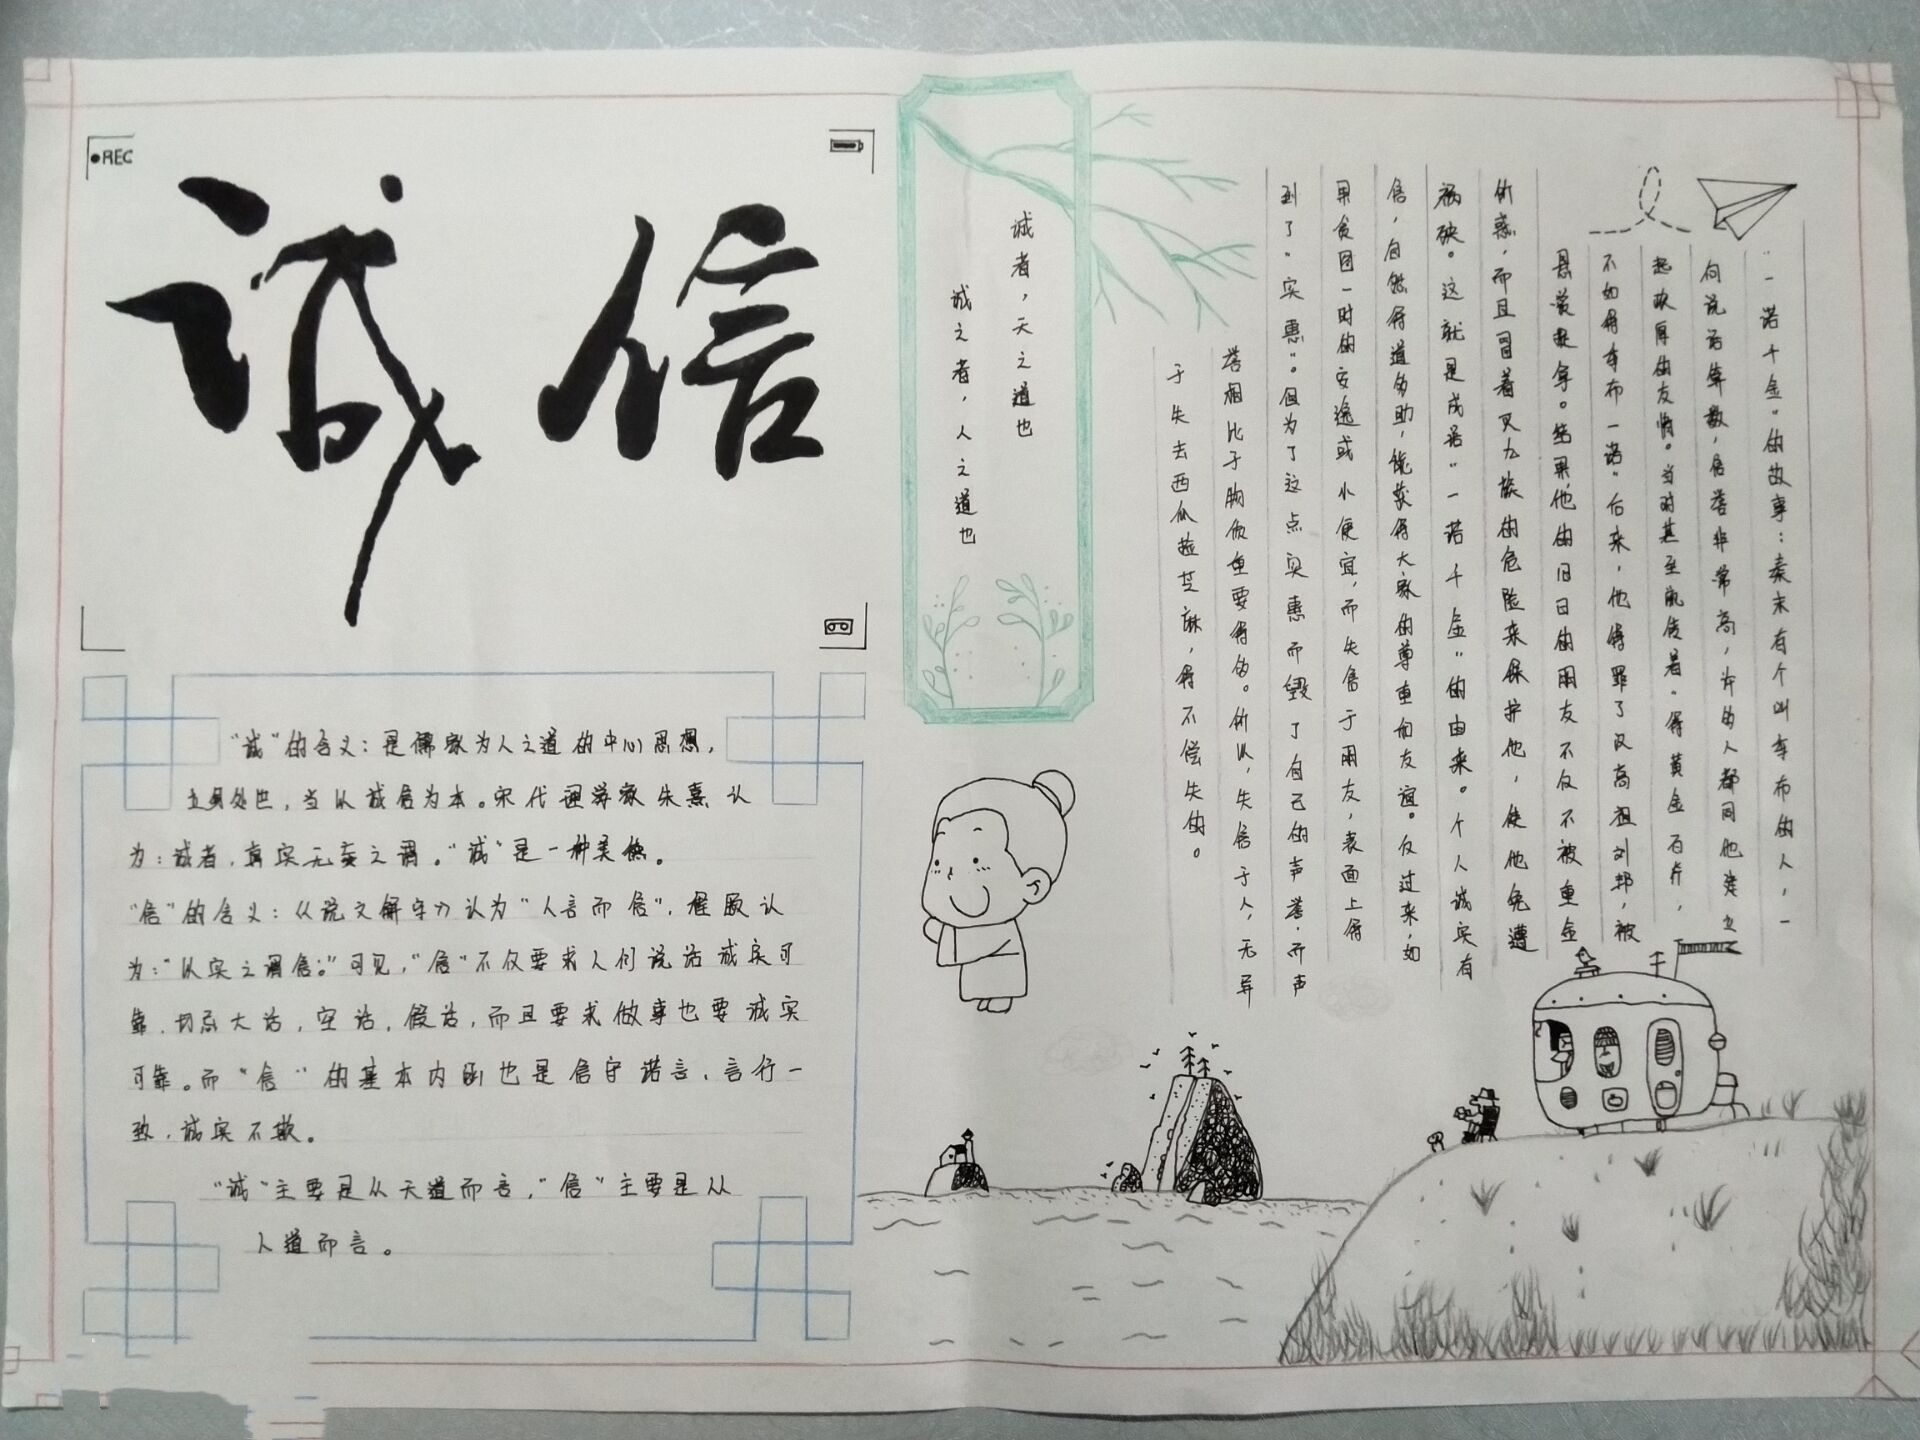 REC
诚信
"诚"的含义：是儒家为人之道的中心思想，
立身处世，当以诚信为本。宋代理学家朱熹认
为：诚者，真实无妄之谓。"诚"是一种美德。
"信"的含义：《说文解字》认为"人言而信"，程颐认
为："以实之谓信。"可见，"信"不仅要求人们说话诚实可
靠，切忌大话，空话，假话，而且要求做事也要诚实
可靠。而"信"的基本内涵也是信守诺言、言行一
致，诚实不欺。
"诚"主要是从天道而言，"信"主要是从
人道而言。
诚者，天之道也
诚之者，人之道也
"一诺千金"的故事：秦末有个叫季布的人，一
向说话算数，信誉非常高，许多人都同他建立
起浓厚的友情。当时甚至流传着"得黄金百斤，
不如得季布一诺"后来，他得罪了汉高祖刘邦，被
悬赏捉拿。结果他的旧日的朋友不仅不被重金
所惑，而且冒着灭九族的危险来保护他，使他免遭
祸殃。这就是成语"一诺千金"的由来。个人诚实有
信，自然得道多助，能获得大家的尊重和友谊。反过来，如
果贪图一时的安逸或小便宜，而失信于朋友，表面上得
到了"实惠"。但为了这点实惠而毁了自己的声誉.而声
誉相比于物质重要得多。所以，失信于人，无异
于失去西瓜捡芝麻，得不偿失的。